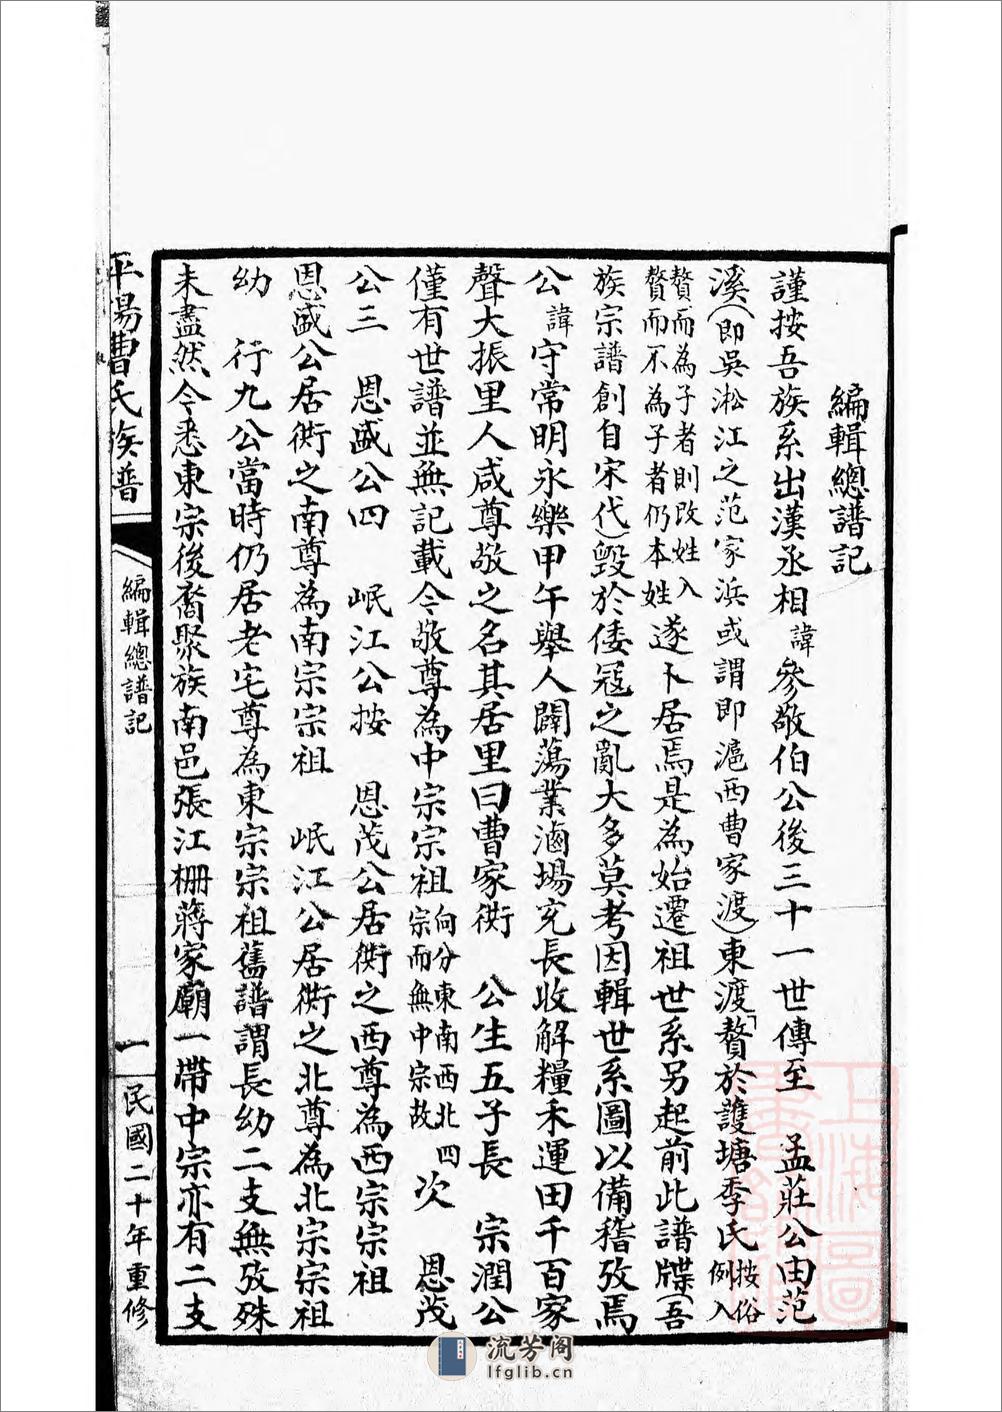 編輯總譜記
謹按吾族系出漢丞相諱參敬伯公後三十一世傳至　孟莊公由范
溪（即吳淞江之范家浜或謂即滬西曹家渡）東渡贅於護塘季氏按俗例入
贅而為子者則改姓入贅而不為子者仍本姓遂卜居焉是為始遷祖世系另起前此譜牒（吾
族宗譜創自宋代）毀於倭寇之亂大多莫考因輯世系圖以備稽攷焉
公諱守常明永樂甲午舉人闢蕩業滷場充長收解糧禾運田千百家
聲大振里人咸尊敬之名其居里曰曹家衖　公生五子長　宗潤公
僅有世譜並無記載今敬尊為中宗宗祖向分東南西北四宗而無中宗故次　恩茂
公三　恩盛公四　岷江公按　恩茂公居衖之西尊為西宗宗祖
恩盛公居衖之南尊為南宗宗祖　岷江公居衖之北尊為北宗宗祖
幼　行九公當時仍居老宅尊為東宗宗祖舊譜謂長幼二支無攷殊
未盡然今悉東宗後裔聚族南邑張江柵蔣家廟一帶中宗亦有二支
平陽曹氏族譜
編輯總譜記
一
民國二十年重修
上海圖書館藏
流芳阁
lfglib.cn